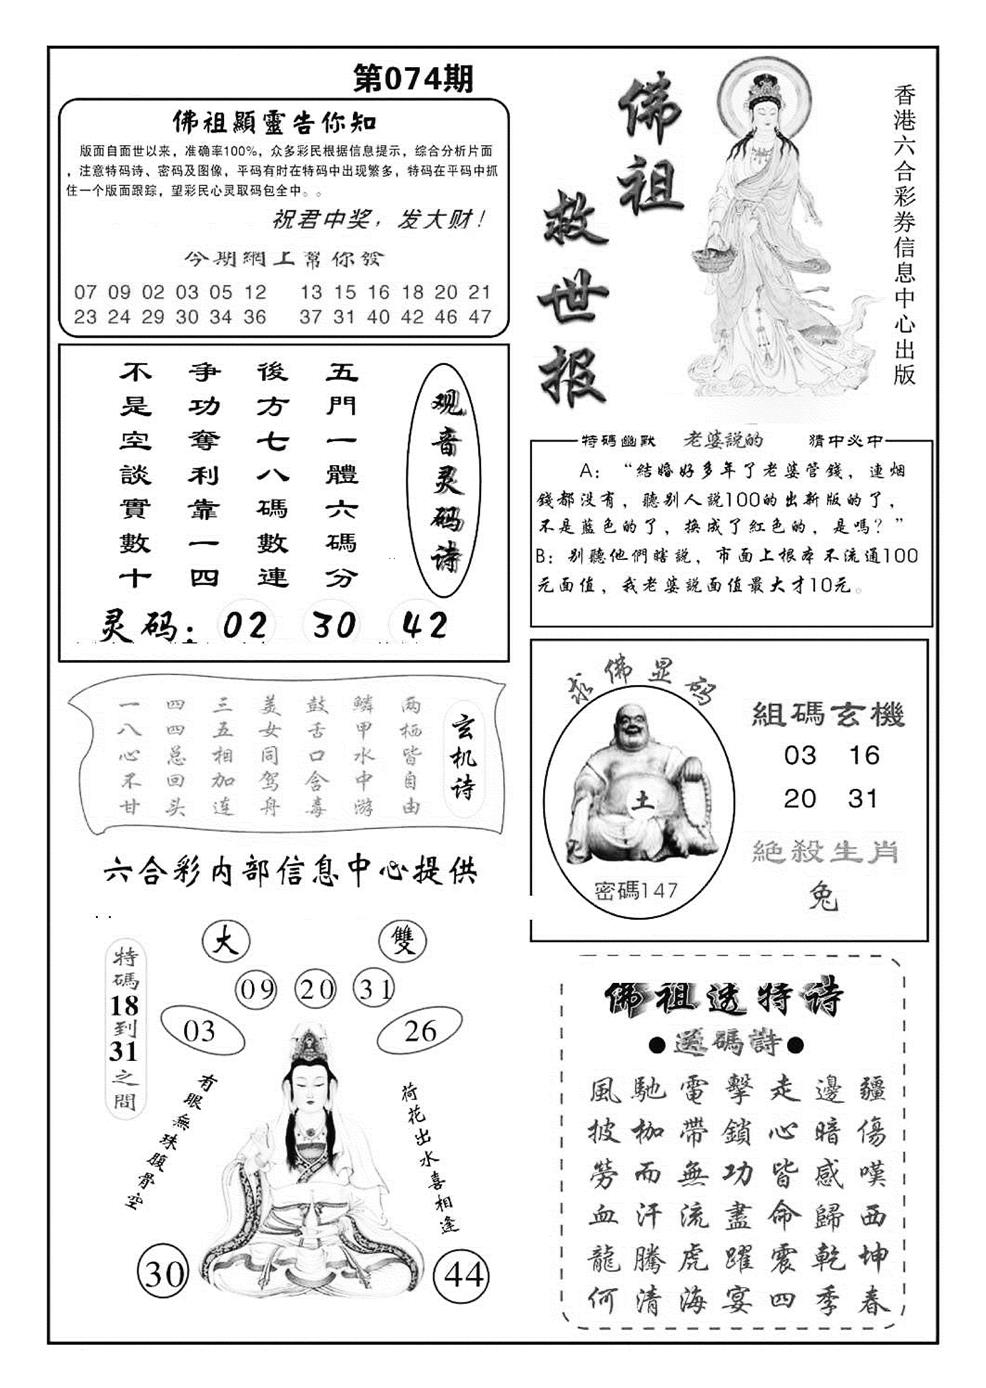 第074期
佛祖顯靈告你知
版面自面世以来，准确率100%，众多彩民根据信息提示，综合分析片面
，注意特码诗、密码及图像，平码有时在特码中出现繁多，特码在平码中抓
住一个版面跟踪，望彩民心灵取码包全中。。
祝君中奖，发大财！
今期網上幫你發
07 09 02 03 05 12 13 15 16 18 20 21
23 24 29 30 34 36 37 31 40 42 46 47
佛祖
救世报
香港六合彩券信息中心出版
观音灵码诗
五門一體六碼分
後方七八碼數連
争功奪利靠一四
不是空談實數十
灵码：02 30 42
特碼幽默 老婆説的 猜中必中
A：“結婚好多年了老婆管錢，連烟
錢都没有，聽别人説100的出新版的了，
不是藍色的了，换成了紅色的，是嗎？”
B：别聽他們瞎説，市面上根本不流通100
元面值，我老婆説面值最大才10元。
玄机诗
两栖皆自由
鳞甲水中游
鼓舌口含毒
美女同驾舟
三五相加连
四四总回头
一八心不甘
求佛显码
土
密碼147
組碼玄機
03 16
20 31
絕殺生肖
兔
六合彩内部信息中心提供
大
雙
特碼18到31之間
09
20
31
03
26
有眼無珠腹骨空
荷花出水喜相逢
30
44
佛祖透特诗
●送碼詩●
風馳電擊走邊疆
披枷帶鎖心暗傷
勞而無功皆感嘆
血汗流盡命歸西
龍騰虎躍震乾坤
何清海宴四季春